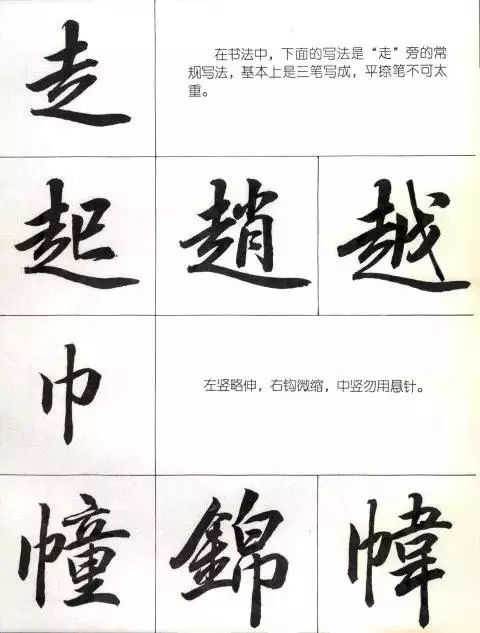 走
在书法中，下面的写法是“走”旁的常
规写法，基本上是三笔写成，平捺笔不可太
重。
起 趙 越
巾
左竖略伸，右钩微缩，中竖勿用悬针。
幢 錦 幃